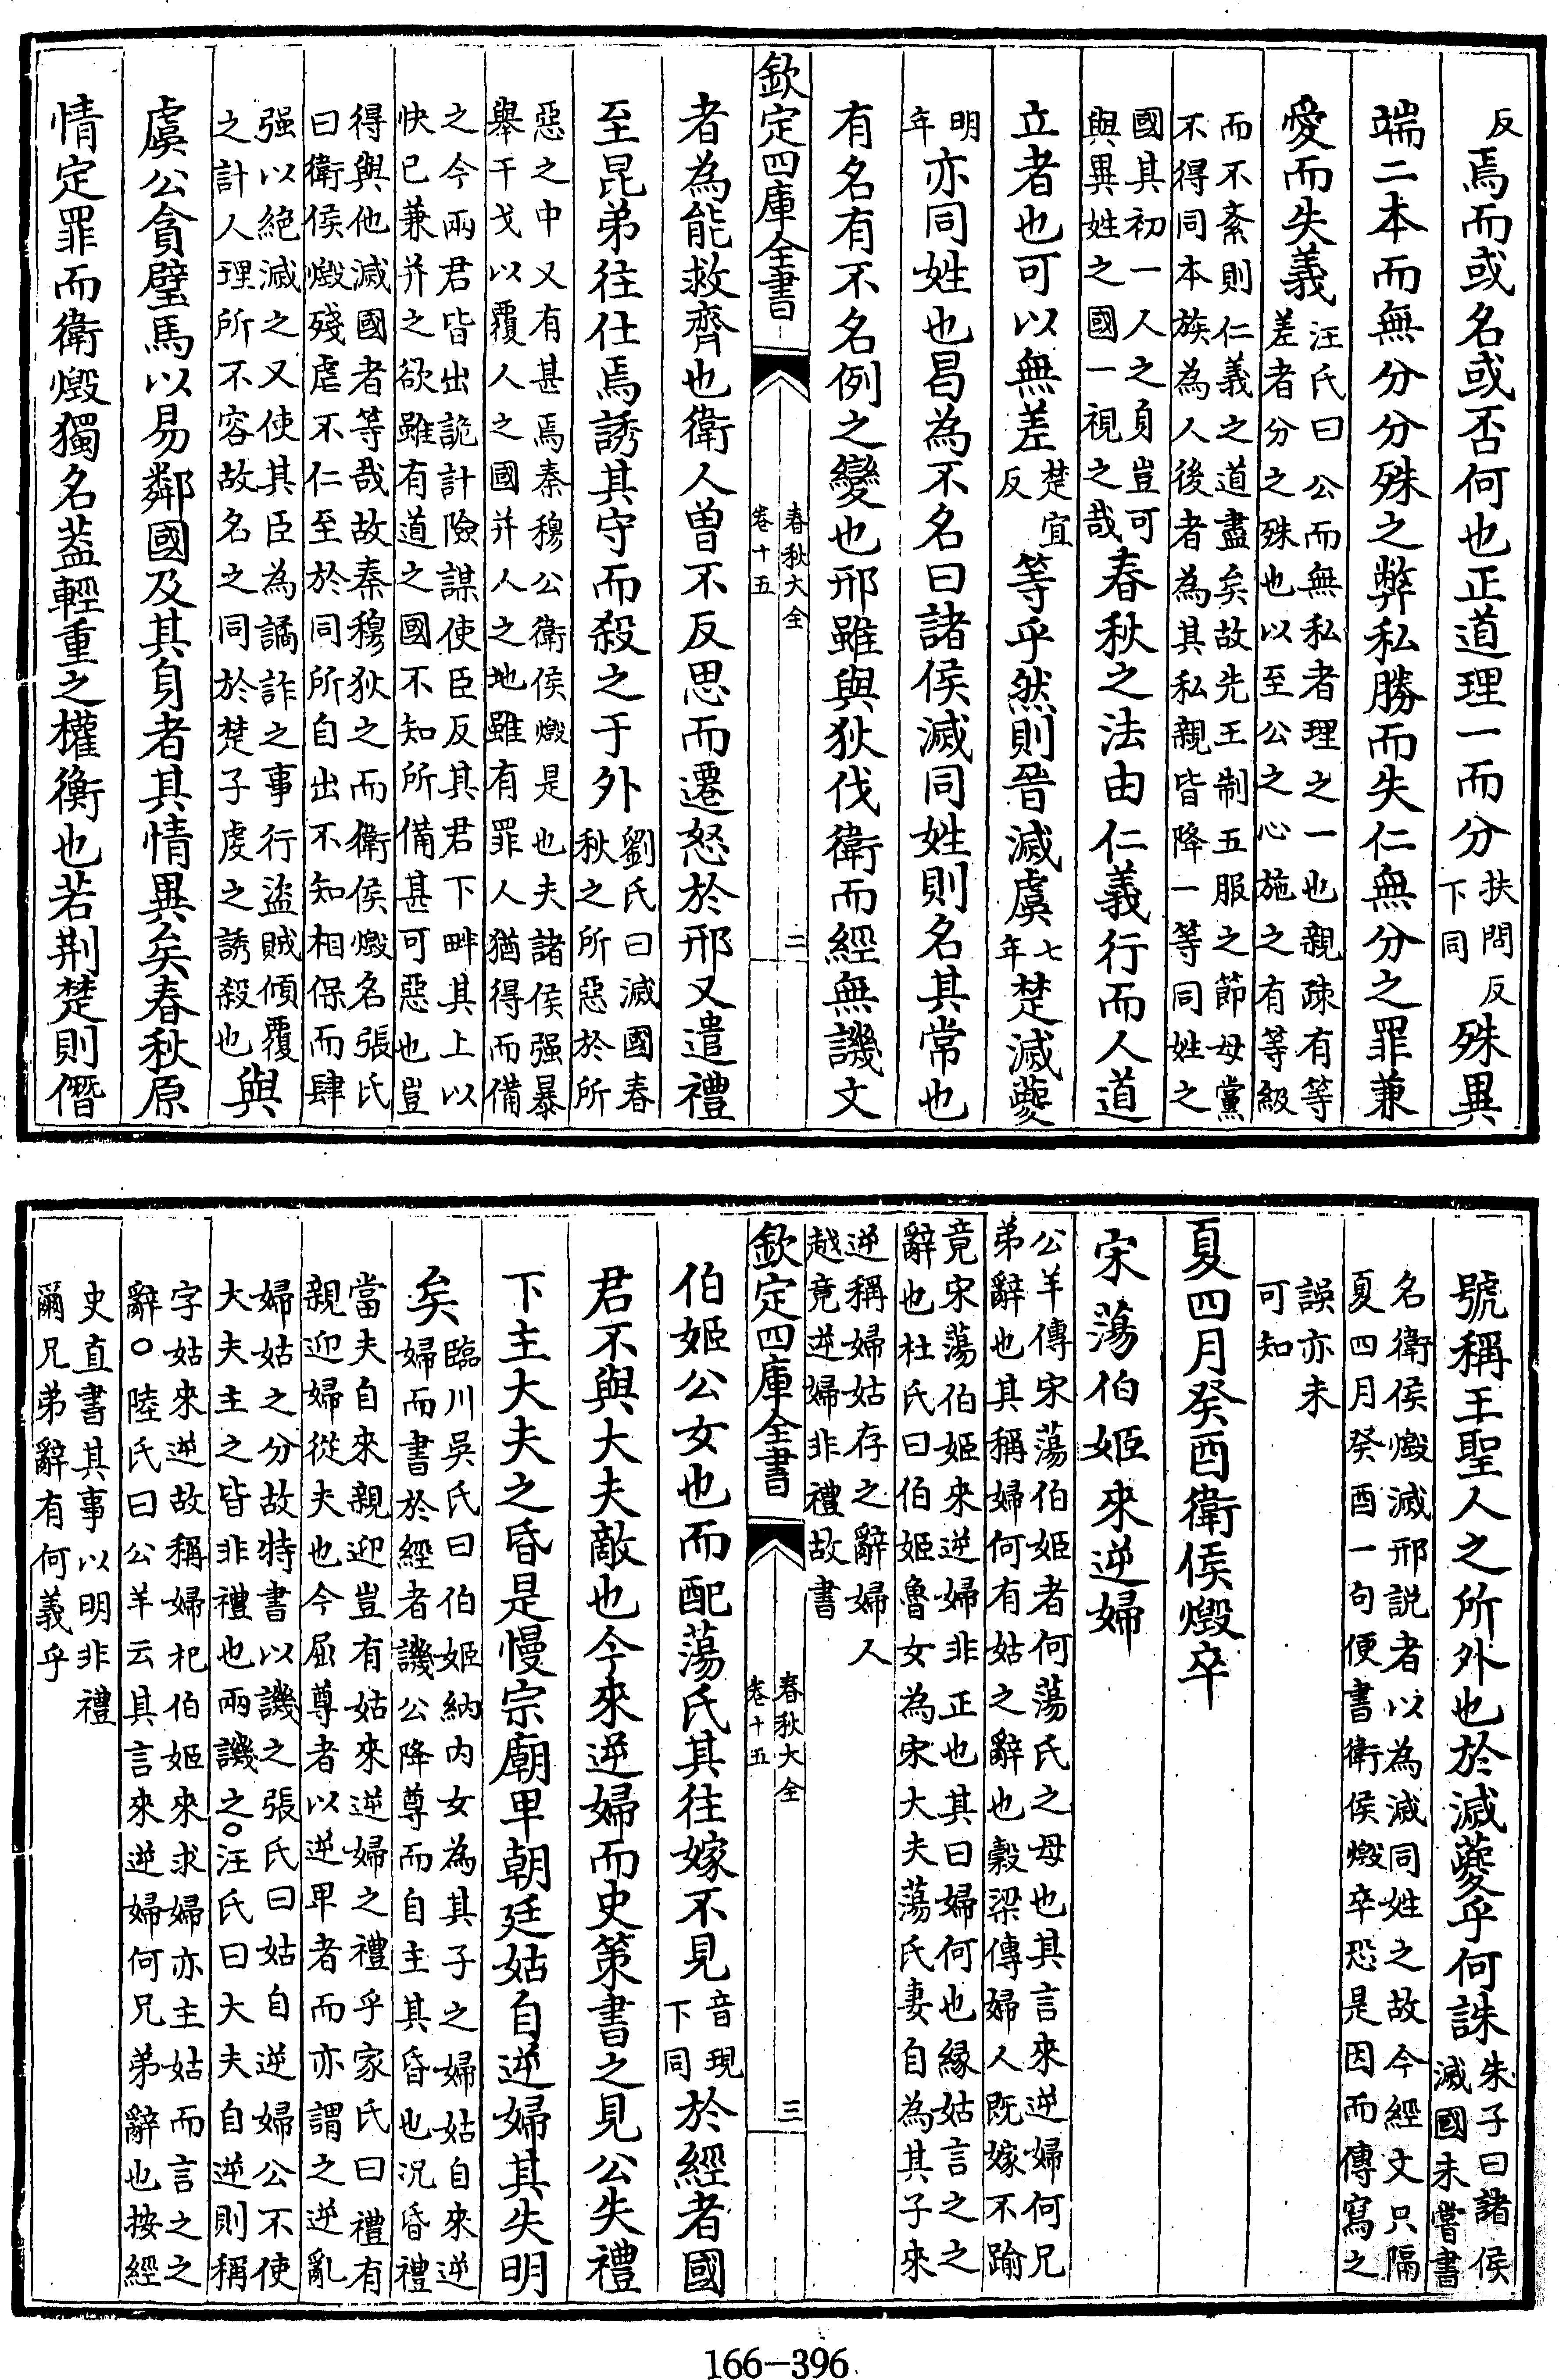 反焉而或名或否何也正道理一而分扶問反下同殊異
端二本而無分分殊之弊私勝而失仁無分之罪兼
愛而失義汪氏曰公而無私者理之一也親疎有等差者分之殊也以至公之心施之有等級
而不紊則仁義之道盡矣故先王制五服之節母黨不得同本族為人後者為其私親皆降一等同姓之
國其初一人之身豈可與異姓之國一視之哉春秋之法由仁義行而人道
立者也可以無差楚宜反等乎然則晉滅虞七年楚滅夔
明年亦同姓也昌為不名曰諸侯滅同姓則名其常也
有名有不名例之變也邢雖與狄伐衛而經無譏文
欽定四庫全書
春秋大全
卷十五
二
者為能救齊也衛人曾不反思而遷怒於邢又遣禮
至昆弟往仕焉誘其守而殺之于外劉氏曰滅國春秋之所惡於所
惡之中又有甚焉秦穆公衛侯燬是也夫諸侯强暴舉干戈以覆人之國并人之地雖有罪人猶得而備
之今兩君皆出詭計險謀使臣反其君下畔其上以快已兼并之欲雖有道之國不知所備甚可惡也豈
得與他滅國者等哉故秦穆狄之而衛侯燬名張氏曰衛侯燬殘虐不仁至於同所自出不知相保而肆
强以絕滅之又使其臣為譎詐之事行盜賊傾覆之計人理所不容故名之同於楚子虔之誘殺也與
虞公貪璧馬以易鄰國及其身者其情異矣春秋原
情定罪而衛燬獨名葢輕重之權衡也若荆楚則僭
號稱王聖人之所外也於滅夔乎何誅朱子曰諸侯滅國未嘗書
名衛侯燬滅邢説者以為滅同姓之故今經文只隔夏四月癸酉一句便書衛侯燬卒恐是因而傳寫之
誤亦未可知
夏四月癸酉衛侯燬卒
宋蕩伯姬來逆婦
公羊傳宋蕩伯姬者何蕩氏之母也其言來逆婦何兄弟辭也其稱婦何有姑之辭也穀梁傳婦人既嫁不踰
竟宋蕩伯姬來逆婦非正也其曰婦何也緣姑言之之辭也杜氏曰伯姬魯女為宋大夫蕩氏妻自為其子來
逆稱婦姑存之辭婦人越竟逆婦非禮故書
欽定四庫全書
春秋大全
卷十五
三
伯姬公女也而配蕩氏其往嫁不見音現下同於經者國
君不與大夫敵也今來逆婦而史策書之見公失禮
下主大夫之昏是慢宗廟卑朝廷姑自逆婦其失明
矣臨川吳氏曰伯姬納内女為其子之婦姑自來逆婦而書於經者譏公降尊而自主其昏也况昏禮
當夫自來親迎豈有姑來逆婦之禮乎家氏曰禮有親迎婦從夫也今屈尊者以逆卑者而亦謂之逆亂
婦姑之分故特書以譏之張氏曰姑自逆婦公不使大夫主之皆非禮也兩譏之○汪氏曰大夫自逆則稱
字姑來逆故稱婦杞伯姬來求婦亦主姑而言之之辭○陸氏曰公羊云其言來逆婦何兄弟辭也按經
史直書其事以明非禮爾兄弟辭有何義乎
166-396